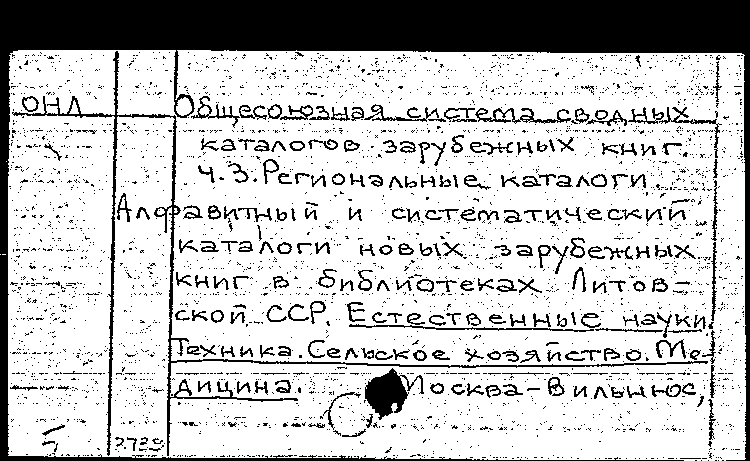 ОНЛ Общесоюзная система сводных
каталогов зарубежных книг.
Ч.3. Региональные каталоги.
Алфавитный и систематический
каталоги новых зарубежных
книг в библиотеках Литов-
ской ССР. Естественные науки.
Техника. Сельское хозяйство. Ме-
дицина. Москва-Вильнюс,